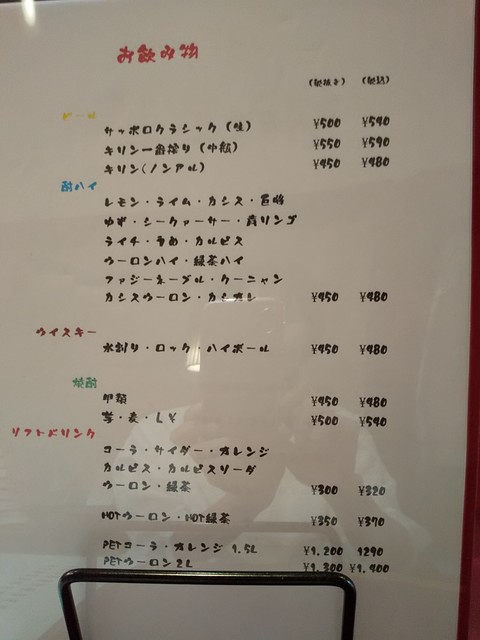 お飲み物
(税抜き) (税込)
ビール
サッポロクラシック (生) ¥500 ¥540
キリン一番搾り (中瓶) ¥550 ¥590
キリン(ノンアル) ¥450 ¥480
酎ハイ
レモン・ライム・カシス・巨峰
ゆず・シークァーサー・青リンゴ
ライチ・うめ・カルピス
ウーロンハイ・緑茶ハイ
ファジーネーブル・クーニャン
カシスウーロン・カシオレ ¥450 ¥480
ウイスキー
水割り・ロック・ハイボール ¥450 ¥480
焼酎
甲類 ¥450 ¥480
芋・麦・しそ ¥500 ¥540
ソフトドリンク
コーラ・サイダー・オレンジ
カルピス・カルピスソーダ
ウーロン・緑茶 ¥300 ¥320
HOTウーロン・HOT緑茶 ¥350 ¥370
PETコーラ・オレンジ 1.5L ¥1.200 1290
PETウーロン 2L ¥1.300 ¥1.400